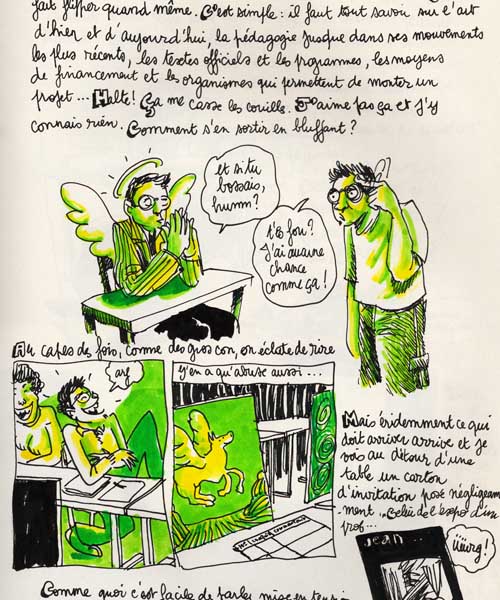 fait flipper quand même. C'est simple : il faut tout savoir sur l'art
d'hier et d'aujourd'hui, la pédagogie jusque dans ses mouvements
les plus récents, les textes officiels et les programmes, les moyens
de financement et les organismes qui permettent de monter un
projet... Halte! Ça me casse les couilles. J'aime pas ça et j'y
connais rien. Comment s'en sortir en bluffant?
et si tu
bossais,
humm?
t'es fou?
J'ai aucune
chance
comme ça!
Au capes des fois, comme des gros con, on éclate de rire
y'en a qu'abuse aussi...
Mais évidemment ce qui
doit arriver arrive et je
vois au détour d'une
table un carton
d'invitation posé négligeam-
ment. Celui de l'expo d'un
prof...
Jean...
üüürg!
Comme quoi c'est facile de parler mise en